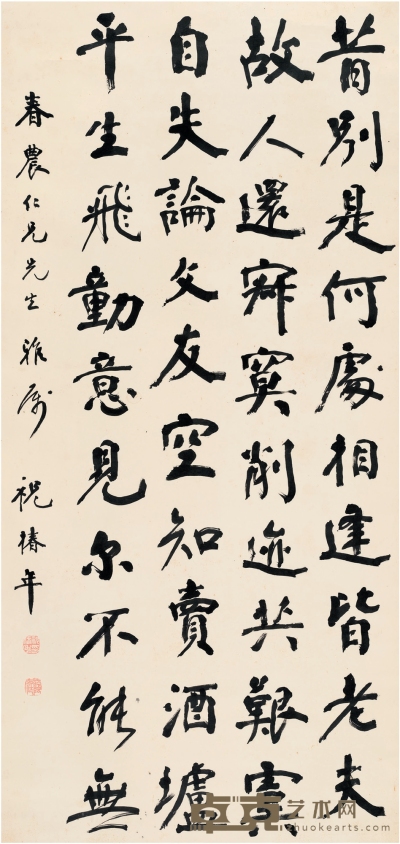 昔別是何處相逢皆老夫
故人還寂寞削迹共艱虞
自失論文友空知賣酒壚
平生飛動意見尔不能無
春農仁兄先生雅属 祝椿年
卓克艺术网
zhuokearts.com